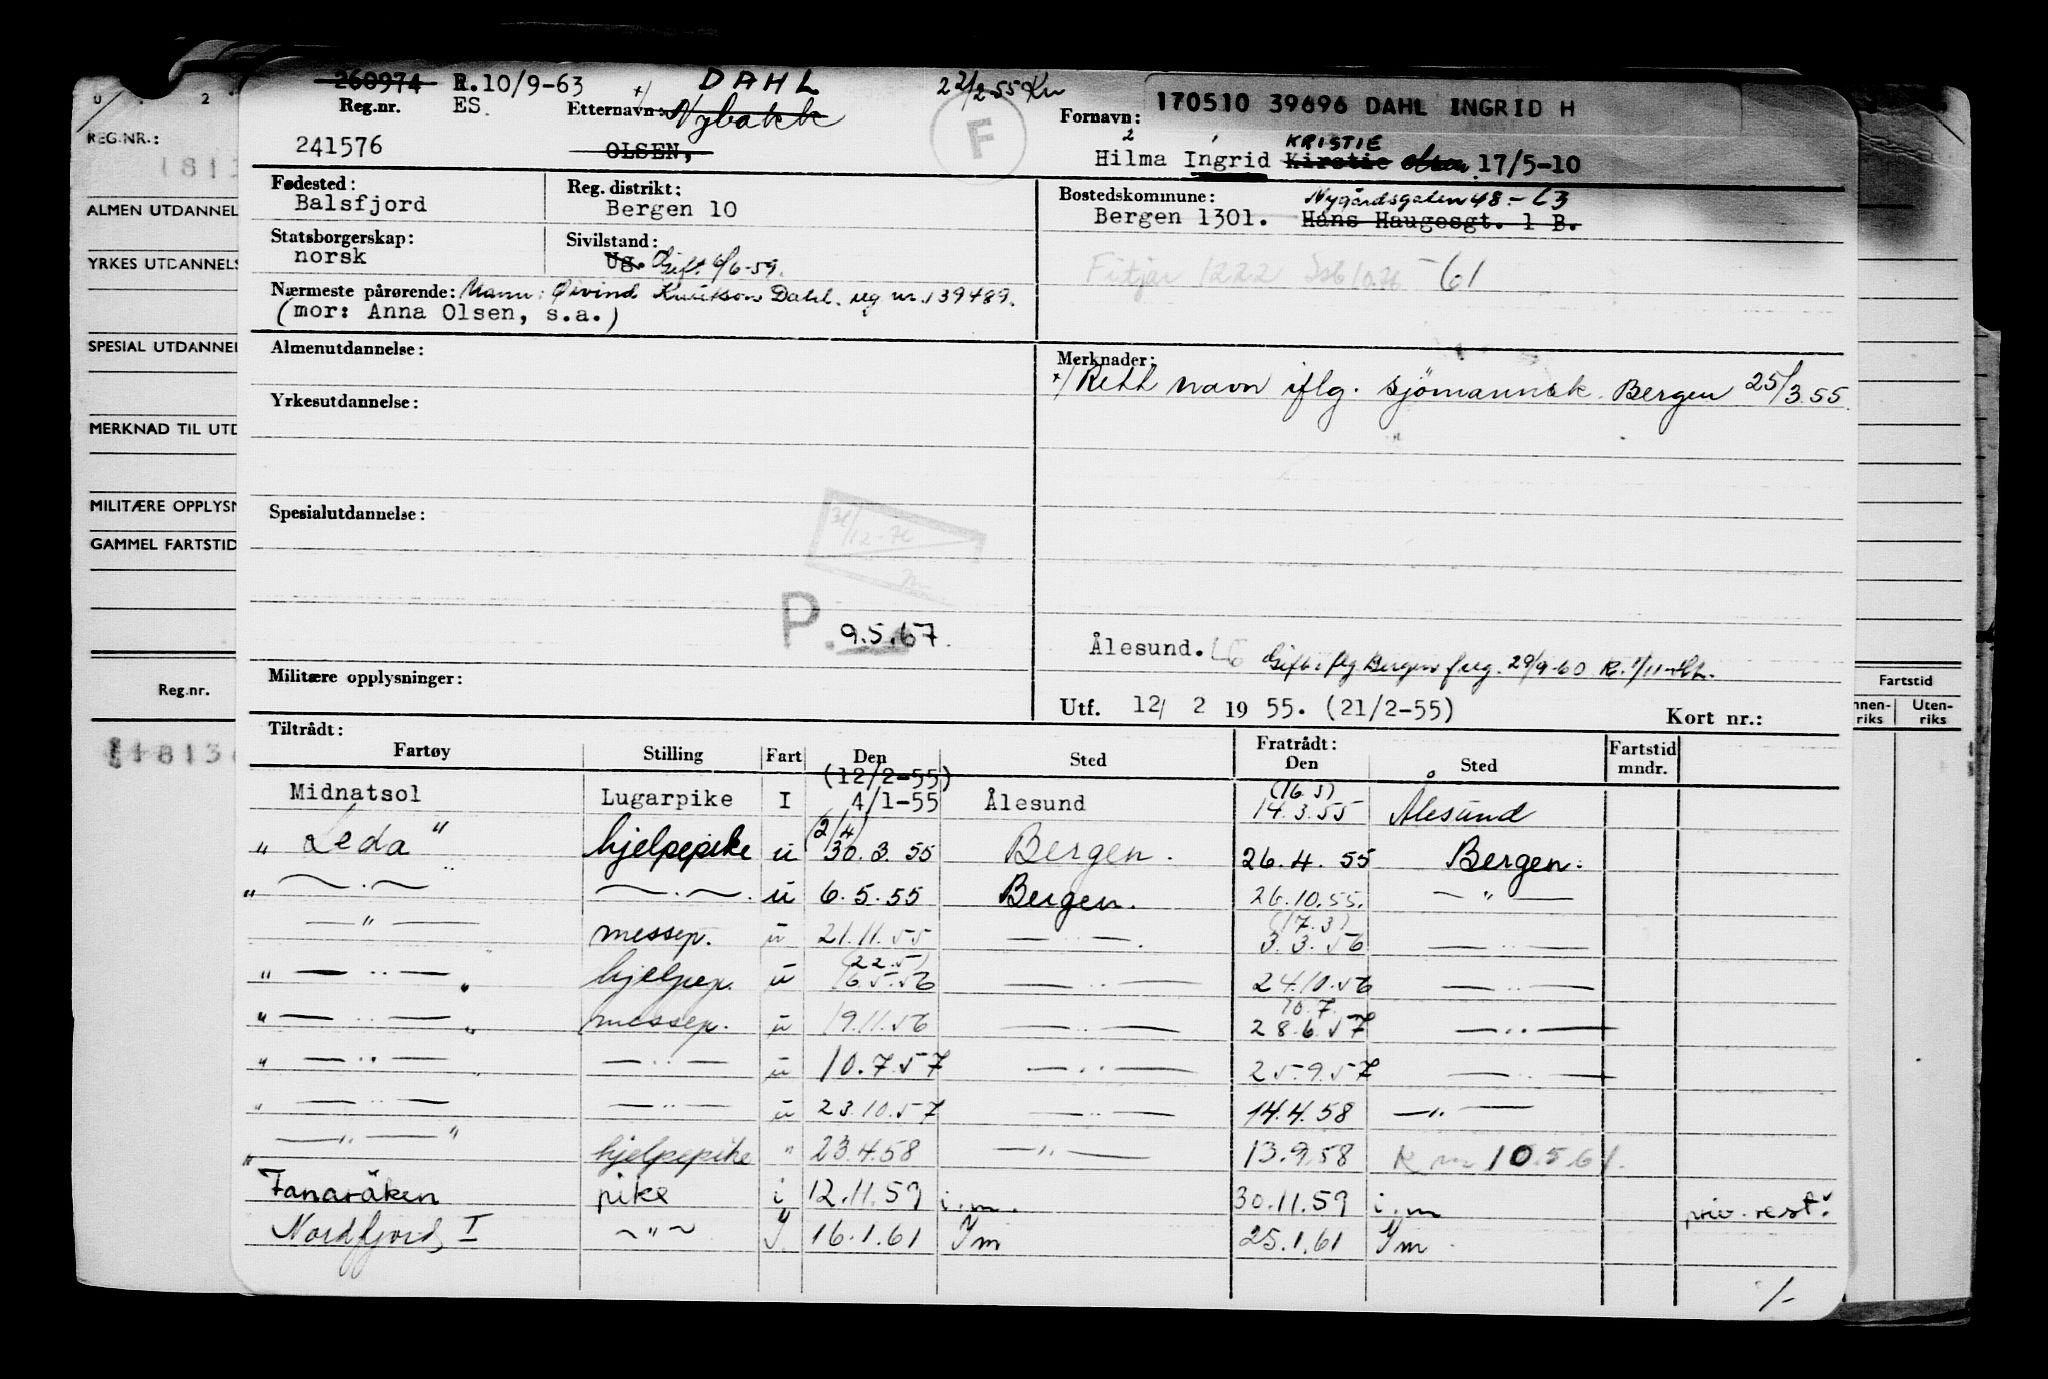 260974 R.10/9-63 DAHL 22/2-55 Kn 170510 39696 DAHL INGRID H
Reg.nr. ES. Etternavn: Nybakk F Fornavn:
241576 OLSEN, Hilma Ingrid Kirstie Olsen 17/5-10
KRISTIE
2
Fødested: Reg. distrikt: Bostedskommune: Nygårdsgaten 48 - C3
Balsfjord Bergen 10 Bergen 1301. Hans Haugesgt. 1 B.
Statsborgerskap: Sivilstand:
norsk Ug. Gift 6/6-59. Fitjar 1222 -61
Nærmeste pårørende: Mann: Øivind Dahl. reg nr. 139489.
(mor: Anna Olsen, s.a.)
Almenutdannelse: Merknader:
+/ Rett navn iflg. sjömannsk. Bergen 25/3.55.
Yrkesutdannelse:
Spesialutdannelse:
31/12-
P. 9.5.67.
Ålesund. Gift: flg Bergen freg. 29/9-60
Militære opplysninger:
Utf. 12/ 2 19 55. (21/2-55) Kort nr.:
Tiltrådt: Fratrådt:
Fartøy Stilling Fart Den Sted Den Sted Fartstid mndr.
(12/2-55) (16.3)
Midnatsol Lugarpike I 4/1-55 Ålesund 14.3.55 Ålesund
(2/4)
" Leda " hjelpepike u 30.3.55 Bergen. 26.4.55 Bergen.
" — . — — . — . u 6.5.55 Bergen. 26.10.55. — " —
(17.3)
— " — messep. u 21.11.55 — .. — . 3.3.56 — .. —
(22.5)
" — .. — " hjelpep. u 16.5.56 — .. — 24.10.56 — .. —
10.7.
" — .. — " messep. u 19.11.56 — .. — 28.6.57 — .. —
" — .. — " — .. — u 10.7.57 — .. — 25.9.57 — .. —
" — .. — — .. — u 23.10.57 — .. — 14.4.58 — " —
" — " — " hjelpepike " 23.4.58 — " — 13.9.58 10.5.61.
Fanaråken pike i 12.11.59 i.m. 30.11.59 i.m priv. rest.
Nordfjord I — " — I 16.1.61 Im 25.1.61 Im
/-
REG.NR.:
1813
ALMEN UTDANNEL
YRKES UTDANNELS
SPESIAL UTDANNEL
MERKNAD TIL UTD
MILITÆRE OPPLYSN
GAMMEL FARTSTID
Reg.nr.
18136
Fartstid
nnen-riks Uten-riks